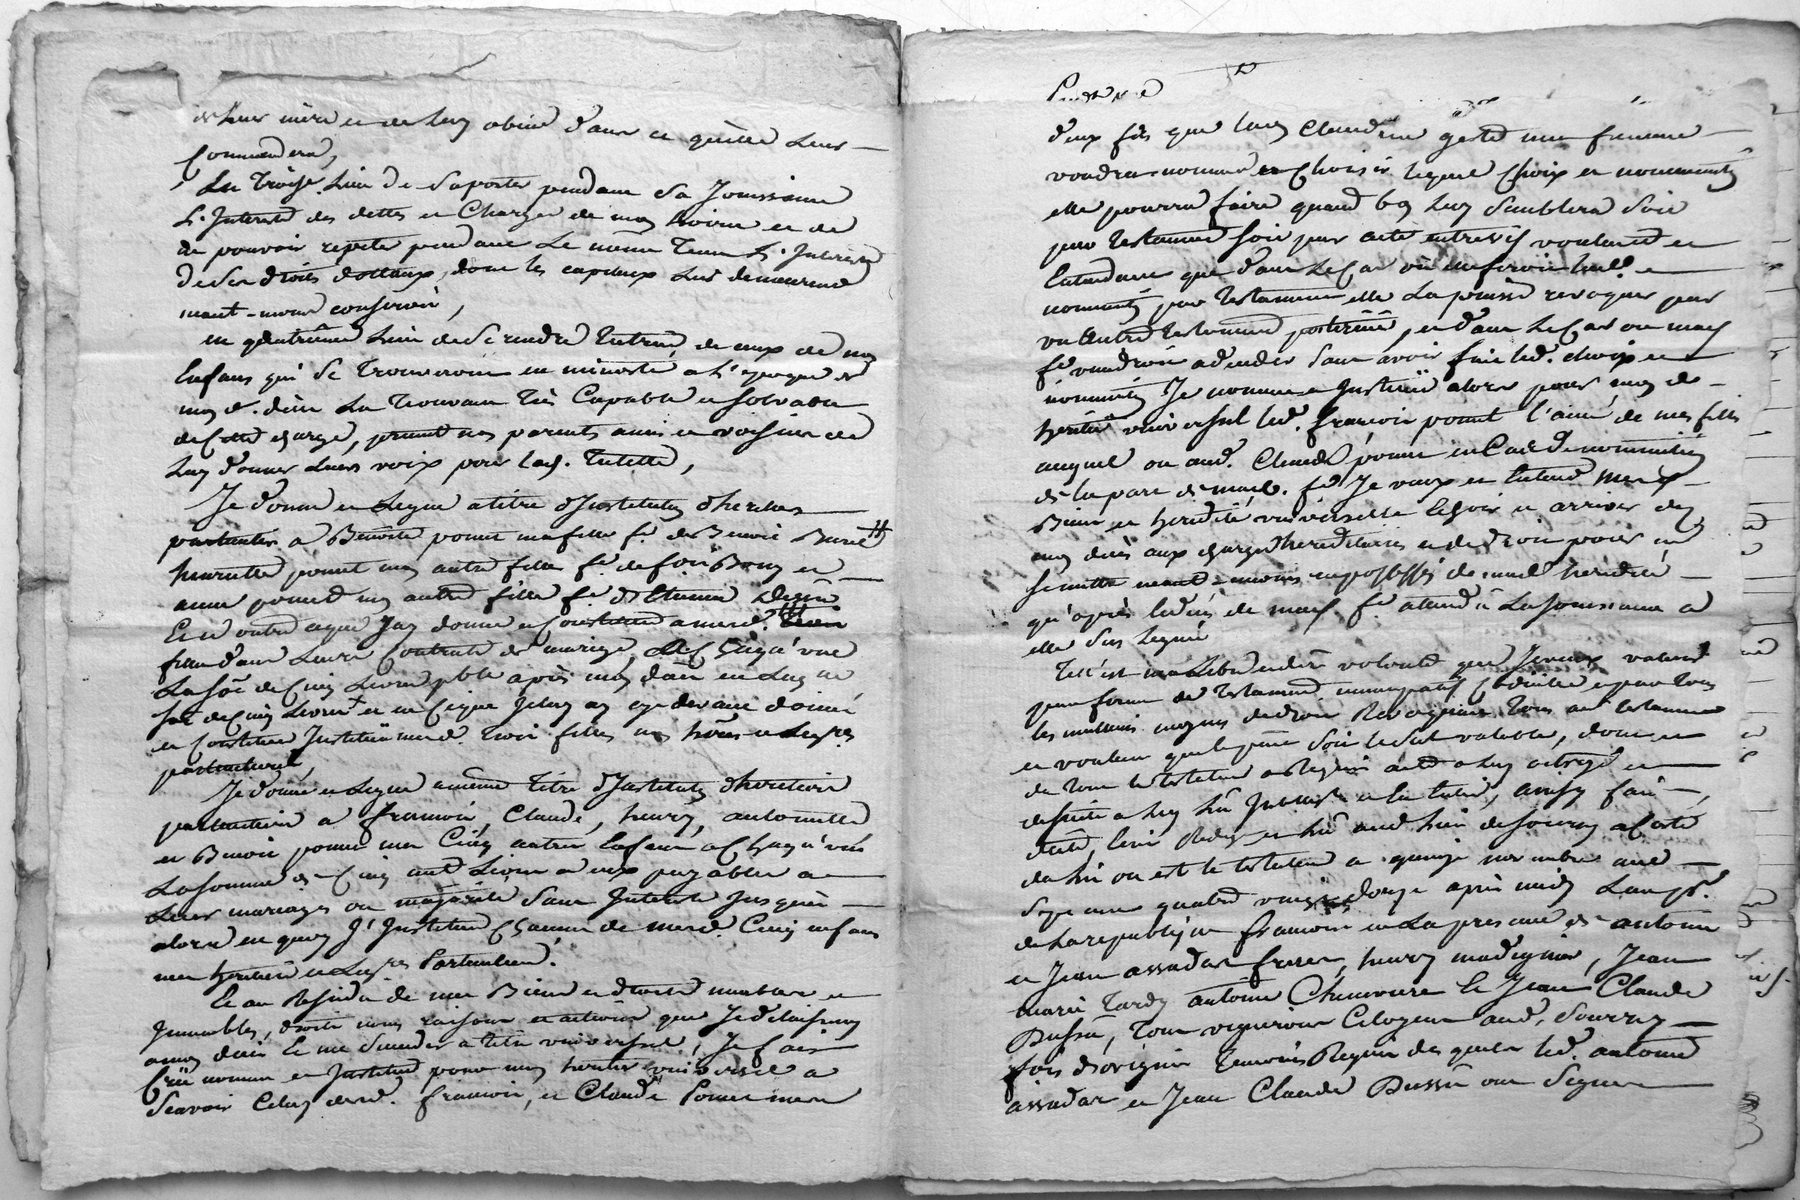 leur mère et de luy obéir dans ce qu'elle leur
Commandera,
La troize. lieu de Suporter pendant Sa Jouissance
L'Interest des dettes et Charges de mon hoirie et de
de pouvoir repeter pendant Le même Tems L'Interest
de Ses droits dottaux, dont les capitaux Luy demeureront
neant-moins conservés,
en quatrième Lieu de Se rendre tutrice de ceux de mes
Enfans qui Se trouveroient en minorité a L'epoque de
mon d. décès La trouvant très Capable et Solvable
de Cette charge, priant mes parents amis et voisins de
Luy donner Leurs voix pour lad. Tutelle,
Je donne et Legue a titre d'Institution d'heritiers
particuliers a Benoite ponnet ma fille fe. de Benoit
ponnet mon autre fille fe. de et
anne ponnet mon autre fille fe. d'Etienne
Et ce outre ce que J'ay donné et Constitué a mesd.
filles dans Leurs Contrats de mariage,
La Sōe de Cinq Livres pble après mon décès
de Cinq Livres et en ce que Je Luy ay cy devant donné
et Constitué Institue mesd. trois filles mes hērs et Legres.
particulieres,
Je donne et Legue a même titre d'Institution d'heritiers
particuliers a francois, Claude, henry, antoinette
et Benoit ponnet mes Cinq autres Enfans a Chaqu'uns
La Somme de Cinq cent Livres a eux payables a
Leurs mariages ou majorité Sans Interets Jusques
alors en quoy J'Institue Chacun de mesd. Cinq enfans
mes heritiers et Legres. Particuliers.
Et au Residu de mes Biens et droits meubles et
Immeubles, droits noms raisons et actions que Je delaisseray
a mon décès Et me Succeder a titre universel, Je fais
Crée nomme et Institue pour mon heritier universel a
Scavoir Celuy desd. francois, et Claude Ponnet mes
deux fils que lad. Claudine ma femme
voudra nommer et Choisir lequel Choix et nomination
elle pourra faire quand bon Luy Semblera Soit
par testament Soit par acte entrevifs voulant et
Entendant que dans Le Cas où elle feroit lad. e
nomination par testament elle La puisse revoquer par
un autre testament posterieur, et dans Le Cas ou mad.
fe. viendroit a deceder Sans avoir fait led. choix et
nomination Je nomme et Institue alors pour mon d.
heritier universel led. francois ponnet l'ainé de mes fils
auquel ou aud. Claude ponnet en Cas de nomination
de la part de mad. fe. Je veux et Entend mes
Biens et heridité universelle Echoir et arriver des
mon décès aux charges hereditaires et de droit pour ne
Se mettre neant-moins en possession de mad. heridité
qu'après le décès de mad. fe. atendu La Jouissance a
elle Sus Leguée
Tel'est ma Libre derniere volonté que Je veux valoir
par forme de testament nuncupatif Codicille et par tous
les meilleurs moyens de droit Revoquant tous autres testament
et voulant que le pnt Soit le Seul valable, dont et
de tout le testateur a Requis acte a Luy octroyé et
desuite a Luy Lû, ainsy fait,
dicté, écrit Redigé et Lû aud. Lieu de Sourcy a Coté
du lit ou est le testateur a quinze novembre mil
Sept cent quatre vingt douze après midy L'an pr.
de La republique francoise en La presence de antoine
et Jean assadar freres, henry madignier, Jean
marie tardy antoine Chenevier Et Jean Claude
Dussud, Tous vignerons Citoyens aud. Sourcy
Temoins Requis desquels led. antoine
assadar et Jean Claude Dussud ont Signé